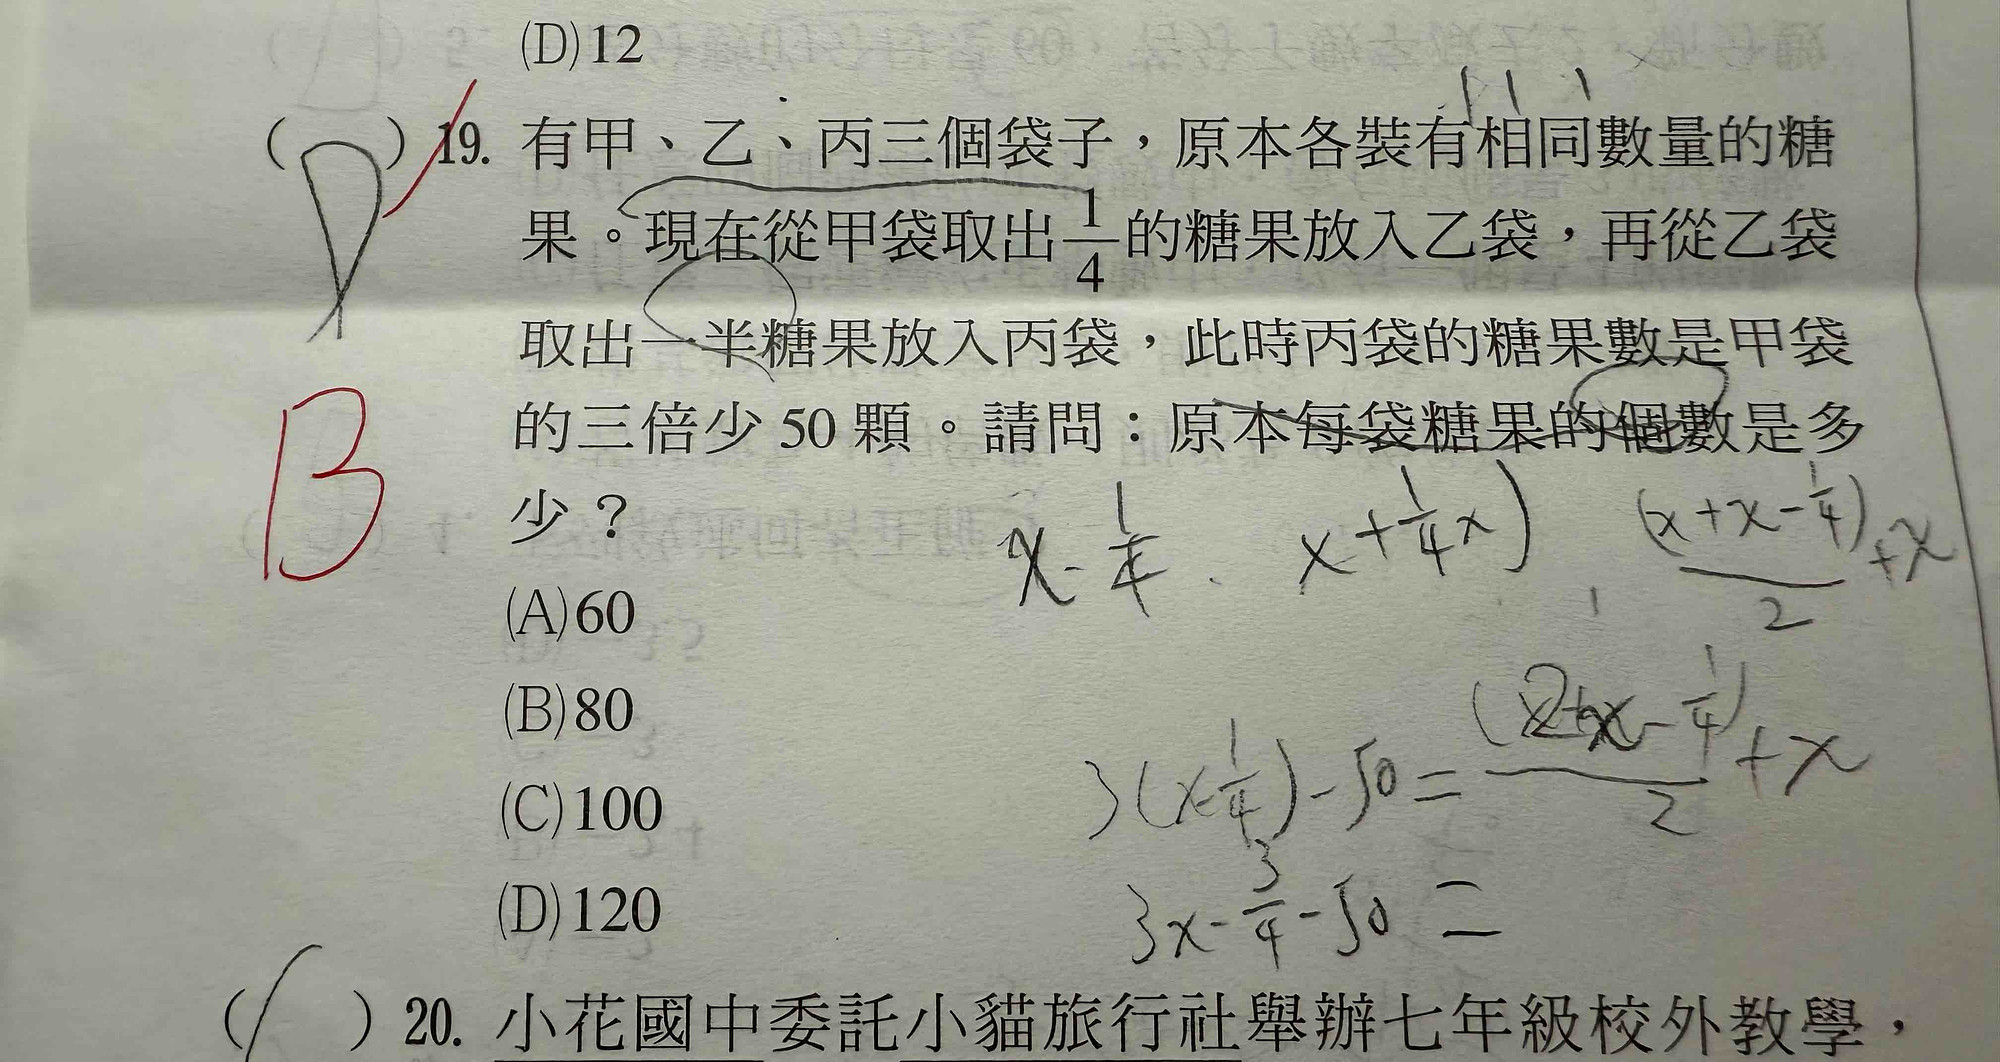 (D)12
( ) 19. 有甲、乙、丙三個袋子，原本各裝有相同數量的糖
果。現在從甲袋取出1/4的糖果放入乙袋，再從乙袋
取出一半糖果放入丙袋，此時丙袋的糖果數是甲袋
的三倍少50顆。請問：原本每袋糖果的個數是多
少？
B
x-1/4 x+1/4x) (x+x-1/4)/2+x
(A)60
(B)80
3(x-1/4)-50=
(C)100
3x-3/4-50=
(D)120
( ) 20. 小花國中委託小貓旅行社舉辦七年級校外教學，